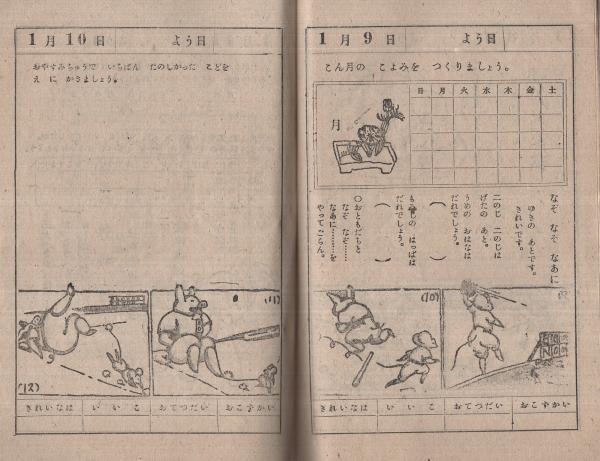 1月9日 よう日
こん月の こよみを つくりましょう。
月
日 月 火 水 木 金 土
なぞ なぞ なあに
ゆきの あとです。
きれいです。
二のじ 二のじは
げたの あと。
うめの おはなは
だれでしょう。
( )
もみじの はっぱは
だれでしょう。
( )
○おともだちと
なぞ なぞ……
なあに………を
やってごらん。
(10)
きれいなは いいこ おてつだい おこずかい
1月10日 よう日
おやすみちゅうで いちばん たのしかった ことを
え に かきましょう。
(11)
(12)
きれいなは いいこ おてつだい おこずかい